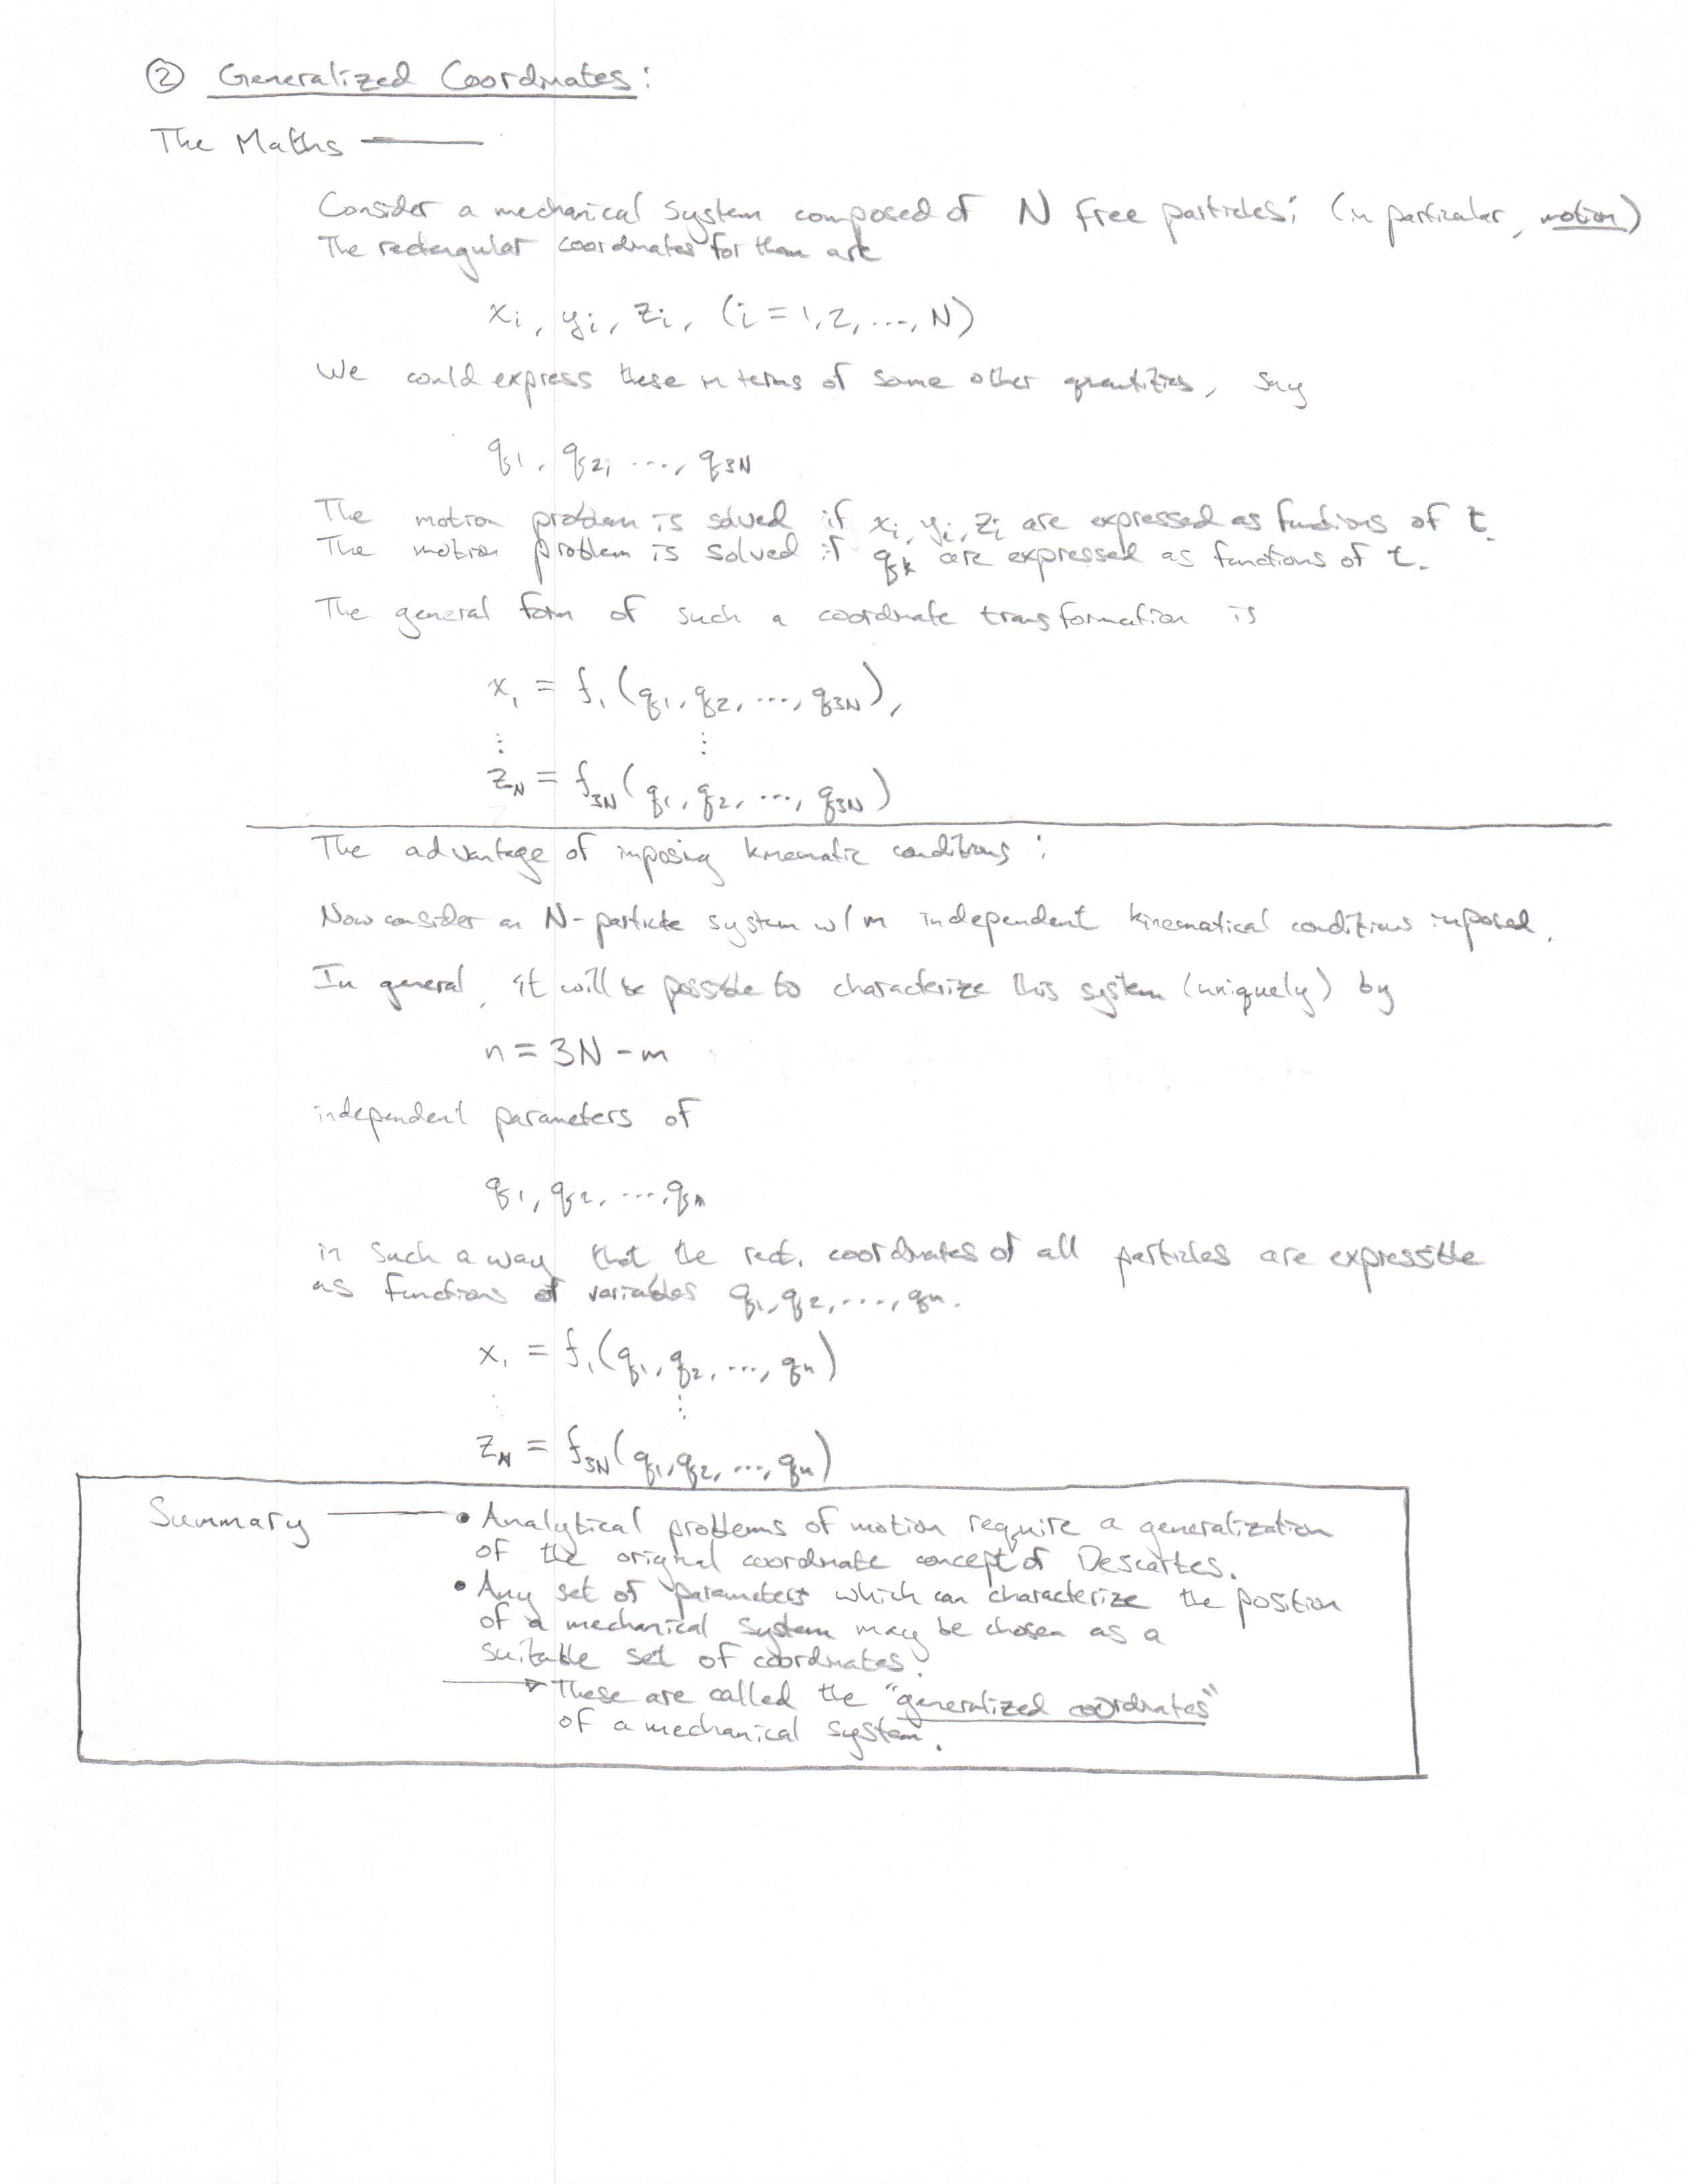 ② Generalized Coordinates:
The Maths —
Consider a mechanical system composed of N free particles; (in particular, motion)
The rectangular coordinates for them are
xi, yi, zi, (i = 1,2, ..., N)
We could express these in terms of some other quantities, say
q1, q2, ..., q3N
The motion problem is solved if xi, yi, zi are expressed as functions of t.
The motion problem is solved if qk are expressed as functions of t.
The general form of such a coordinate transformation is
x1 = f1(q1, q2, ..., q3N),
⋮ ⋮
zN = f3N(q1, q2, ..., q3N)
The advantage of imposing kinematic conditions:
Now consider an N-particle system w/ m independent kinematical conditions imposed.
In general, it will be possible to characterize this system (uniquely) by
n = 3N - m
independent parameters of
q1, q2, ..., qn
in such a way that the rect. coordinates of all particles are expressible
as functions of variables q1, q2, ..., qn.
x1 = f1(q1, q2, ..., qn)
⋮ ⋮
zN = f3N(q1, q2, ..., qn)
Summary — • Analytical problems of motion require a generalization
of the original coordinate concept of Descartes.
• Any set of parameters which can characterize the position
of a mechanical system may be chosen as a
suitable set of coordinates.
→ These are called the "generalized coordinates"
of a mechanical system.